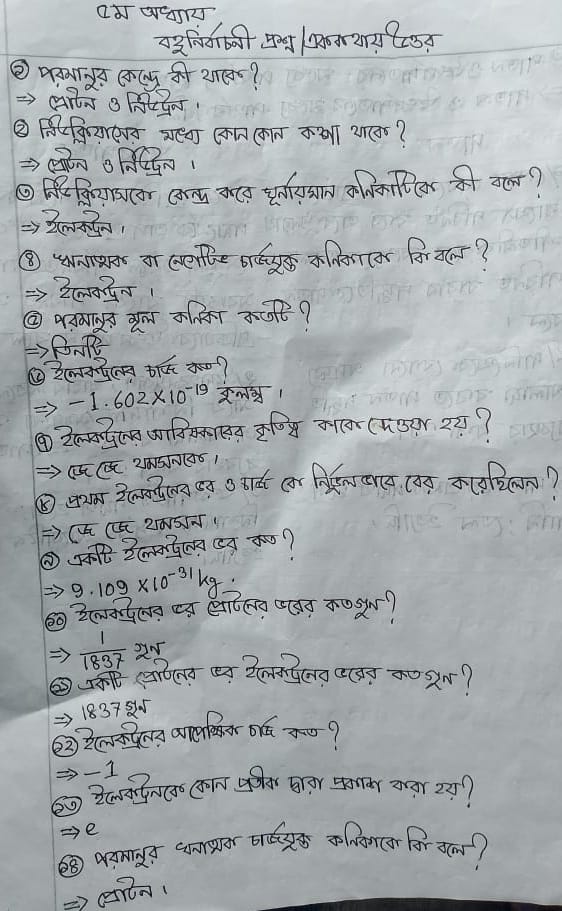 ৫ম অধ্যায়
বহুনির্বাচনী প্রশ্ন / এককথায় উত্তর
① পরমানুর কেন্দ্রে কী থাকে?
⇒ প্রোটন ও নিউট্রন।
② নিউক্লিয়াসের মধ্যে কোন কোন কণা থাকে?
⇒ প্রোটন ও নিউট্রন।
③ নিউক্লিয়াসকে কেন্দ্র করে ঘূর্নায়মান কনিকাটিকে কী বলে?
⇒ ইলেকট্রন।
④ ঋনাত্মক বা নেগেটিভ চার্জযুক্ত কনিকাকে কি বলে?
⇒ ইলেকট্রন।
⑤ পরমানুর মূল কনিকা কতটি?
⇒ তিনটি
⑥ ইলেকট্রনের চার্জ কত?
⇒ -1.602×10⁻¹⁹ কুলম্ব।
⑦ ইলেকট্রনের আবিষ্কারের কৃতিত্ব কাকে দেওয়া হয়?
⇒ জে জে থমসনকে।
⑧ প্রথম ইলেকট্রনের ভর ও চার্জ কে নির্ভুলভাবে বের করেছিলেন?
⇒ জে জে থমসন।
⑨ একটি ইলেকট্রনের ভর কত?
⇒ 9.109 ×10⁻³¹ kg.
⑩ ইলেকট্রনের ভর প্রোটনের ভরের কতগুন?
⇒ 1/1837 গুন
⑪ একটি প্রোটনের ভর ইলেকট্রনের ভরের কতগুন?
⇒ 1837 গুন
⑫ ইলেকট্রনের আপেক্ষিক চার্জ কত?
⇒ -1
⑬ ইলেকট্রনকে কোন প্রতীক দ্বারা প্রকাশ করা হয়?
⇒ e
⑭ পরমানুর ধনাত্মক চার্জযুক্ত কনিকাকে কি বলে?
⇒ প্রোটন।